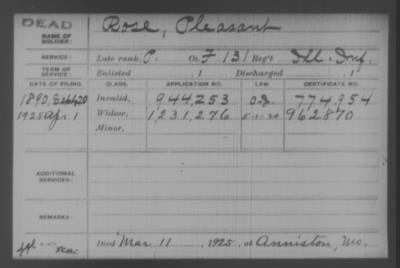 DEAD
NAME OF SOLDIER: Rose, Pleasant
SERVICE: Late rank, P. Co. F 131 Reg't Ill. Inf.
TERM OF SERVICE: Enlisted , 1 Discharged , 1
DATE OF FILING. CLASS. APPLICATION NO. LAW. CERTIFICATE NO.
1890, Sept 20 Invalid, 944,253 774,954
1925 Apr 1 Widow, 1,231,276 5-1-20 962870
Minor,
ADDITIONAL SERVICES:
REMARKS:
Died Mar 11, 1925, at Anniston, Mo.